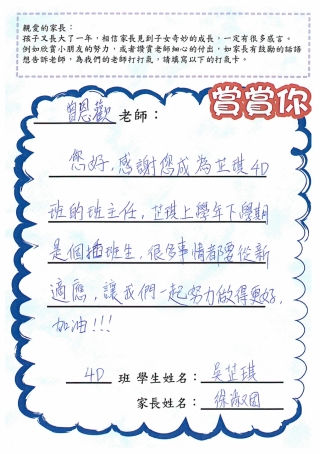 親愛的家長：
孩子又長大了一年，相信家長見到子女奇妙的成長，一定有很多感言。
例如欣賞小朋友的努力，或者讚賞老師細心的付出，如家長有鼓勵的話語
想告訴老師，為我們的老師打打氣，請填寫以下的打氣卡。
賞賞你
曾恩歡 老師：
您好，感謝您成為芷琪4D
班的班主任，芷琪上學年下學期
是個插班生，很多事情都要從新
適應，讓我們一起努力做得更好，
加油!!!
4D 班 學生姓名：吳芷琪
家長姓名：徐淑國